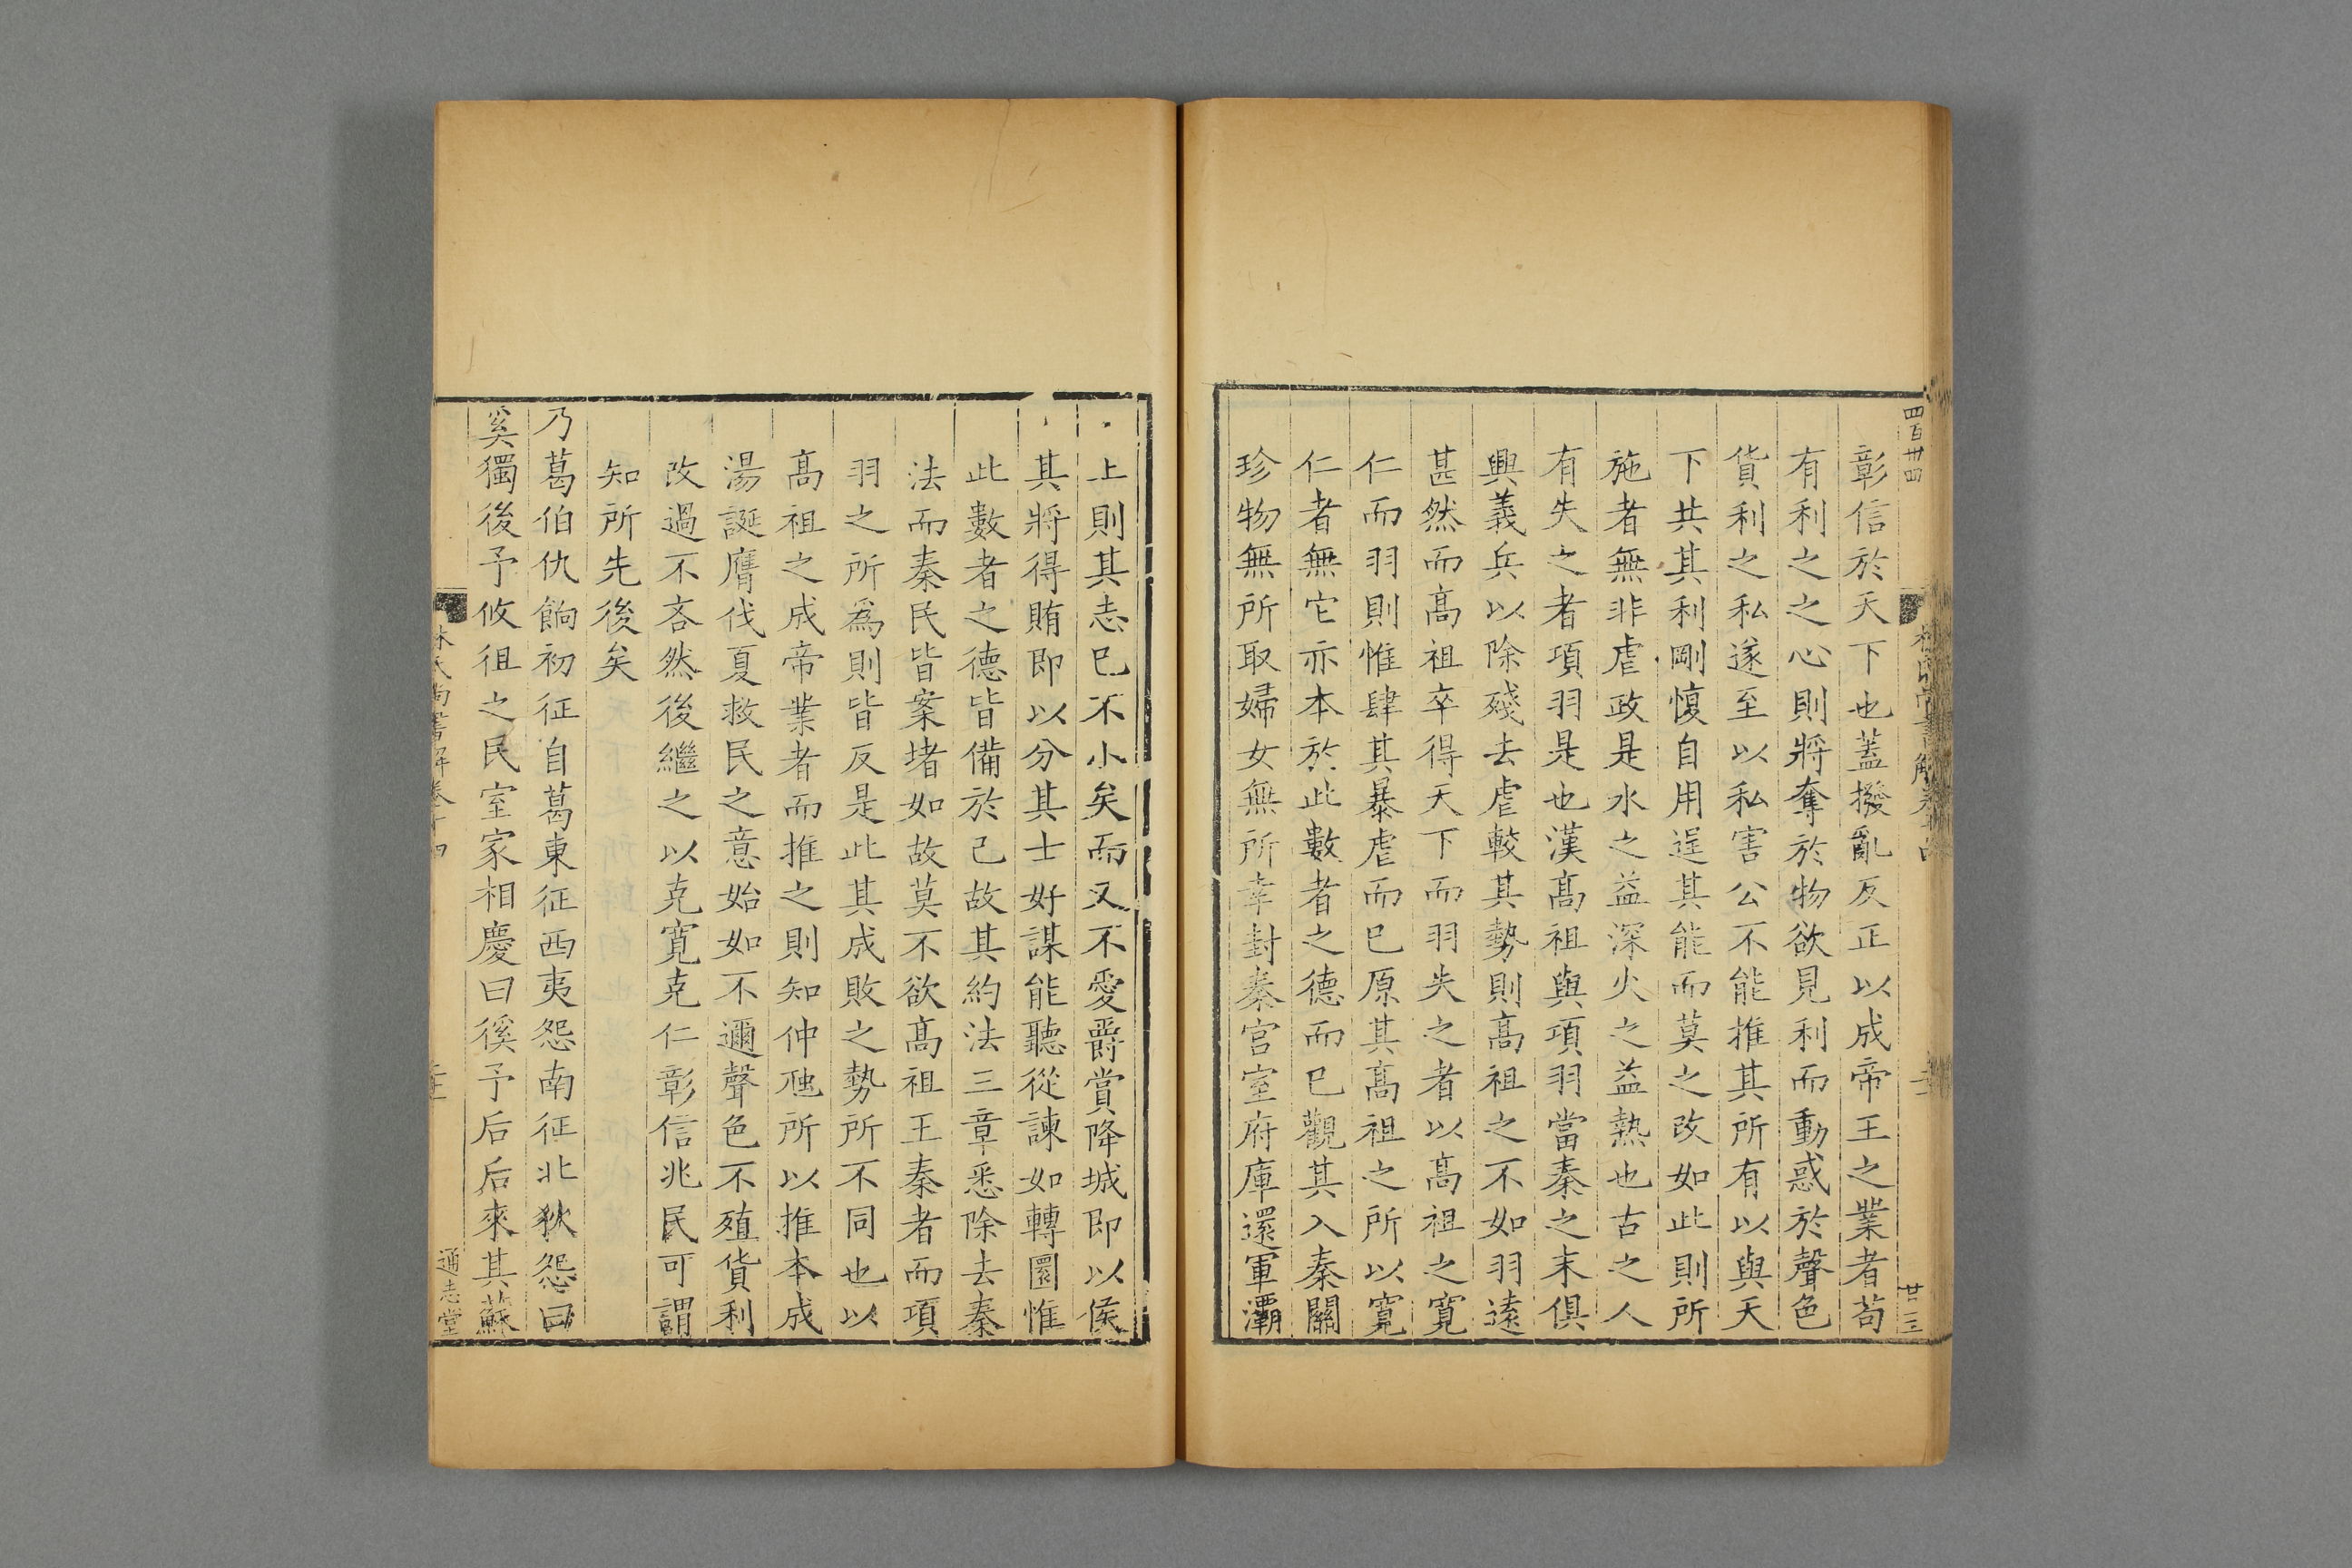 四百卄四
彰信於天下也蓋撥亂反正以成帝王之業者苟
有利之之心則將奪於物欲見利而動惑於聲色
貨利之私遂至以私害公不能推其所有以與天
下共其利剛愎自用逞其能而莫之改如此則所
施者無非虐政是水之益深火之益熱也古之人
有失之者項羽是也漢髙祖與項羽當秦之末俱
興義兵以除殘去虐較其勢則髙祖之不如羽遠
甚然而髙祖卒得天下而羽失之者以髙祖之寛
仁而羽則惟肆其暴虐而已原其髙祖之所以寛
仁者無它亦本於此數者之德而已觀其入秦關
珍物無所取婦女無所幸封秦宫室府庫還軍灞
上則其志已不小矣而又不愛爵賞降城即以侯
其將得賄即以分其士好謀能聽從諫如轉圜惟
此數者之德皆備於己故其約法三章悉除去秦
法而秦民皆案堵如故莫不欲髙祖王秦者而項
羽之所爲則皆反是此其成敗之勢所不同也以
髙祖之成帝業者而推之則知仲虺所以推本成
湯誕膺伐夏救民之意始如不邇聲色不殖貨利
改過不吝然後繼之以克寛克仁彰信兆民可謂
知所先後矣
乃葛伯仇餉初征自葛東征西夷怨南征北狄怨曰
奚獨後予攸徂之民室家相慶曰徯予后后來其蘇
林氏尚書解卷十四
通志堂